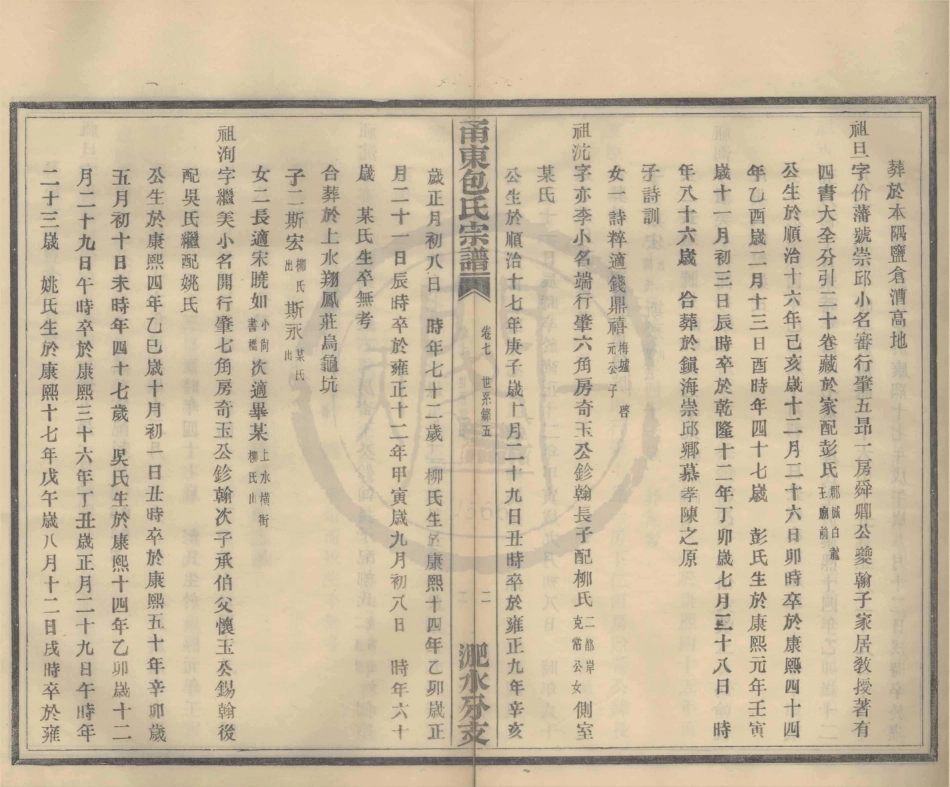 葬於本隅鹽倉漕高地
祖旦字价藩號崇邱小名審行肇五昂一房舜卿公夔翰子家居敎授著有
四書大全分引二十卷藏於家配彭氏郡城白龍王廟前
公生於順治十六年己亥歲十二月二十六日卯時卒於康熙四十四
年乙酉歲二月十三日酉時年四十七歲　彭氏生於康熙元年壬寅
歲十一月初三日辰時卒於乾隆十二年丁卯歲七月二十八日　時
年八十六歲　合葬於鎭海崇邱鄉慕孝陳之原
子詩訓
女一詩粹適錢鼎禧梅墟啓元公子
祖沇字亦李小名端行肇六角房奇玉公鉁翰長子配柳氏二都岸克常公女側室
某氏
公生於順治十七年庚子歲十月二十九日丑時卒於雍正九年辛亥
甬東包氏宗譜　卷七　世系錄五　二　淝水分支
歲正月初八日　時年七十二歲　柳氏生於康熙十四年乙卯歲正
月二十一日辰時卒於雍正十二年甲寅歲九月初八日　時年六十
歲　某氏生卒無考
合葬於上水翔鳳莊烏龜坑
子二斯宏柳氏出斯永某氏出
女二長適宋曉如小尚書橋次適畢某上水橫街柳氏出
祖洵字繼美小名開行肇七角房奇玉公鉁翰次子承伯父懷玉公錫翰後
配吳氏繼配姚氏
公生於康熙四年乙巳歲十月初一日丑時卒於康熙五十年辛卯歲
五月初十日未時年四十七歲　吳氏生於康熙十四年乙卯歲十二
月二十九日午時卒於康熙三十六年丁丑歲正月二十九日午時年
二十三歲　姚氏生於康熙十七年戊午歲八月十二日戌時卒於雍